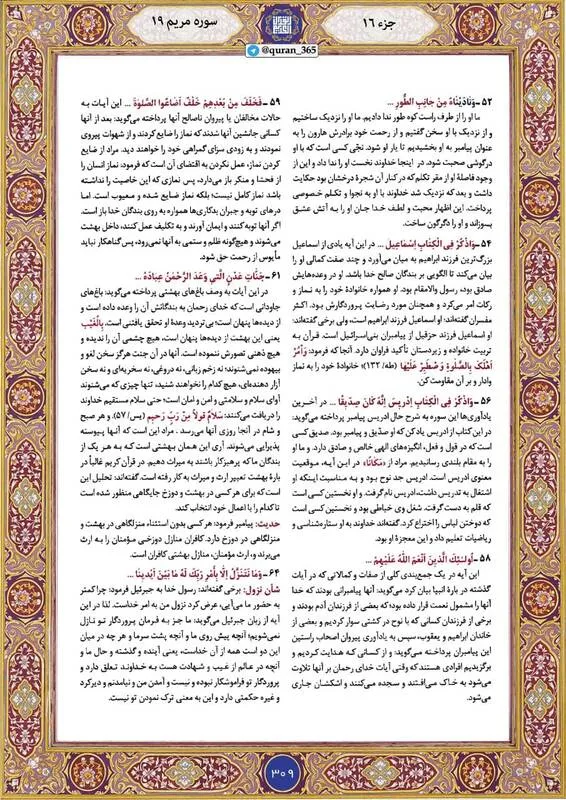 جزء ۱۶
سوره مریم ۱۹
@quran_365
۵۲ - وَنَادَیْنَاهُ مِنْ جَانِبِ الطُّورِ ...
ما او را از طرف راست کوه طور ندا دادیم. ما او را نزدیک ساختیم
و از نزدیک با او سخن گفتیم و از رحمت خود برادرش هارون را به
عنوان پیامبر به او بخشیدیم تا یار او شود. نجّی کسی است که با او
درگوشی صحبت شود. در اینجا خداوند نخست او را ندا داد و این از
وجود فاصلهٔ او از مقر تکلم که در کنار آن شجرهٔ درخشان بود حکایت
داشت و بعد که نزدیک شد خداوند با او به نجوا و تکلم خصوصی
پرداخت. این اظهار محبت و لطف خدا جان او را به آتش عشق
بسوزاند و او را دگرگون ساخت.
۵۴ - وَاذْکُرْ فِی الْکِتَابِ إِسْمَاعِیلَ ... در این آیه یادی از اسماعیل
بزرگ‌ترین فرزند ابراهیم به میان می‌آورد و چند صفت کمالی او را
بیان می‌کند تا الگویی بر بندگان صالح خدا باشد. او در وعده‌هایش
صادق بود، رسول والامقام بود. او همواره خانوادهٔ خود را به نماز و
زکات امر می‌کرد و همچنان مورد رضایت پروردگارش بود. اکثر
مفسران گفته‌اند: او اسماعیل فرزند ابراهیم است، ولی برخی گفته‌اند:
او اسماعیل فرزند حزقیل از پیامبران بنی‌اسرائیل است. قرآن به
تربیت خانواده و زیردستان تأکید فراوان دارد. آنجا که فرمود: وَأْمُرْ
أَهْلَکَ بِالصَّلَوةِ وَ صْطَبِرْ عَلَیْهَا (طه/ ۱۳۲)؛ خانوادهٔ خود را به نماز
وادار و بر آن مقاومت کن.
۵۶ - وَاذْکُرْ فِی الْکِتَابِ إِدْرِیسَ إِنَّهُ کَانَ صِدِّیقًا ... در آخرین
یادآوری‌ها این سوره به شرح حال ادریس پیامبر پرداخته می‌گوید:
در این کتاب از ادریس یاد کن که او صدّیق و پیامبر بود. صدیق کسی
است که در قول و فعل، انگیزه‌های الهی خالص و صادق دارد. و ما او
را به مقام بلندی رسانیدیم. مراد از «مَکَانًا» در این آیه، موقعیت
معنوی ادریس است. ادریس جد نوح بود و به مناسبت اینکه او
اشتغال به تدریس داشت، ادریس نام گرفت. و او نخستین کسی است
که قلم به دست گرفت. شغل وی خیاطی بود و نخستین کسی است
که دوختن لباس را اختراع کرد. گفته‌اند خداوند به او ستاره‌شناسی و
ریاضیات تعلیم داد و این معجزهٔ او بود.
۵۸ - أُولَئِکَ الَّذِینَ أَنْعَمَ اللَّهُ عَلَیْهِمْ ...
این آیه در یک جمع‌بندی کلی از صفات و کمالاتی که در آیات
گذشته در بارهٔ انبیا بیان کرد می‌گوید: آنها پیامبرانی بودند که خدا
آنها را مشمول نعمت قرار داده بود؛ که بعضی از فرزندان آدم بودند و
برخی از فرزندان کسانی که با نوح در کشتی سوار کردیم و بعضی از
خاندان ابراهیم و یعقوب، سپس به یادآوری پیروان اصحاب راستین
این پیامبران پرداخته می‌گوید: و از کسانی که هدایت کردیم و
برگزیدیم افرادی هستند که وقتی آیات خدای رحمان بر آنها تلاوت
می‌شود به خاک می‌افتند و سجده می‌کنند و اشکشان جاری
می‌شود.
۵۹ - فَخَلَفَ مِنْ بَعْدِهِمْ خَلْفٌ أَضَاعُوا الصَّلَوةَ ... این آیات به
حالات مخالفان یا پیروان ناصالح آنها پرداخته می‌گوید: بعد از آنها
کسانی جانشین آنها شدند که نماز را ضایع کردند و از شهوات پیروی
نمودند و به زودی سزای گمراهی خود را خواهند دید. مراد از ضایع
کردن نماز، عمل نکردن به اقتضای آن است که فرمود، نماز انسان را
از فحشا و منکر باز می‌دارد، پس نمازی که این خاصیت را نداشته
باشد نماز کامل نیست؛ بلکه نماز ضایع شده و معیوب است. اما
درهای توبه و جبران بدکاری‌ها همواره به روی بندگان خدا باز است.
اگر آنها توبه کنند و ایمان آورند و به تکلیف عمل کنند، داخل بهشت
می‌شوند و هیچ‌گونه ظلم و ستمی به آنها نمی‌رود، پس گناهکار نباید
مأیوس از رحمت حق شود.
۶۱ - جَنَّاتِ عَدْنٍ الَّتِی وَعَدَ الرَّحْمَنُ عِبَادَهُ ...
در این آیات به وصف باغ‌های بهشتی پرداخته می‌گوید: باغ‌های
جاودانی است که خدای رحمان به بندگانش آن را وعده داده است و
از دیده‌ها پنهان است؛ بی‌تردید وعدهٔ او تحقق یافتنی است. بِالْغَیْبِ
یعنی این بهشت از دیده‌ها پنهان است، هیچ چشمی آن را ندیده و
هیچ ذهنی تصورش ننموده است. آنها در آن جنت هرگز سخن لغو و
بیهوده نمی‌شنوند؛ نه زخم زبانی، نه دروغی، نه سخریه‌ای و نه سخن
آزار دهنده‌ای، هیچ کدام را نخواهند شنید، تنها چیزی که می‌شنوند
آوای سلام و سلامتی و امن و امان است؛ حتی سلام مستقیم خداوند
را دریافت می‌کنند: سَلَامٌ قَوْلًا مِنْ رَبٍّ رَحِیمٍ (یس/ ۵۷). و هر صبح
و شام در آنجا روزی آنها می‌رسد. مراد این است که آنها پیوسته
پذیرایی می‌شوند. آری این همان بهشتی است که به هر یک از
بندگان ما که پرهیزکار باشند به میراث دهیم. در قرآن کریم غالباً در
بارهٔ بهشت تعبیر ارث و میراث به کار رفته است. گفته‌اند: تحلیل این
است که برای هر کسی در بهشت و دوزخ جایگاهی منظور شده است
تا کدام را با اعمال خود انتخاب کند.
حدیث: پیامبر فرمود: هر کسی بدون استثناء منزلگاهی در بهشت و
منزلگاهی در دوزخ دارد. کافران منازل دوزخی مؤمنان را به ارث
می‌برند، و ارث مؤمنان، منازل بهشتی کافران است.
۶۴ - وَمَا نَتَنَزَّلُ إِلَّا بِأَمْرِ رَبِّکَ لَهُ مَا بَیْنَ أَیْدِینَا ...
شأن نزول: برخی گفته‌اند: رسول خدا به جبرئیل فرمود: چرا کمتر
به حضور ما می‌آیی، عرض کرد نزول من به امر خداست. لذا در این
آیه از زبان جبرئیل می‌گوید: ما جز به فرمان پروردگار تو نازل
نمی‌شویم؛ آنچه پیش روی ما و آنچه پشت سر ما و هر چه در میان
این دو است همه از آن خداست، یعنی آینده و گذشته و حال ما و
آنچه در عالم از غیب و شهادت هست به خداوند تعلق دارد و
پروردگار تو فراموشکار نبوده و نیست و آمدن من و نیامدنم و دیرکرد
و غیره حکمتی دارد و این به معنی ترک نمودن تو نیست.
۳۰۹